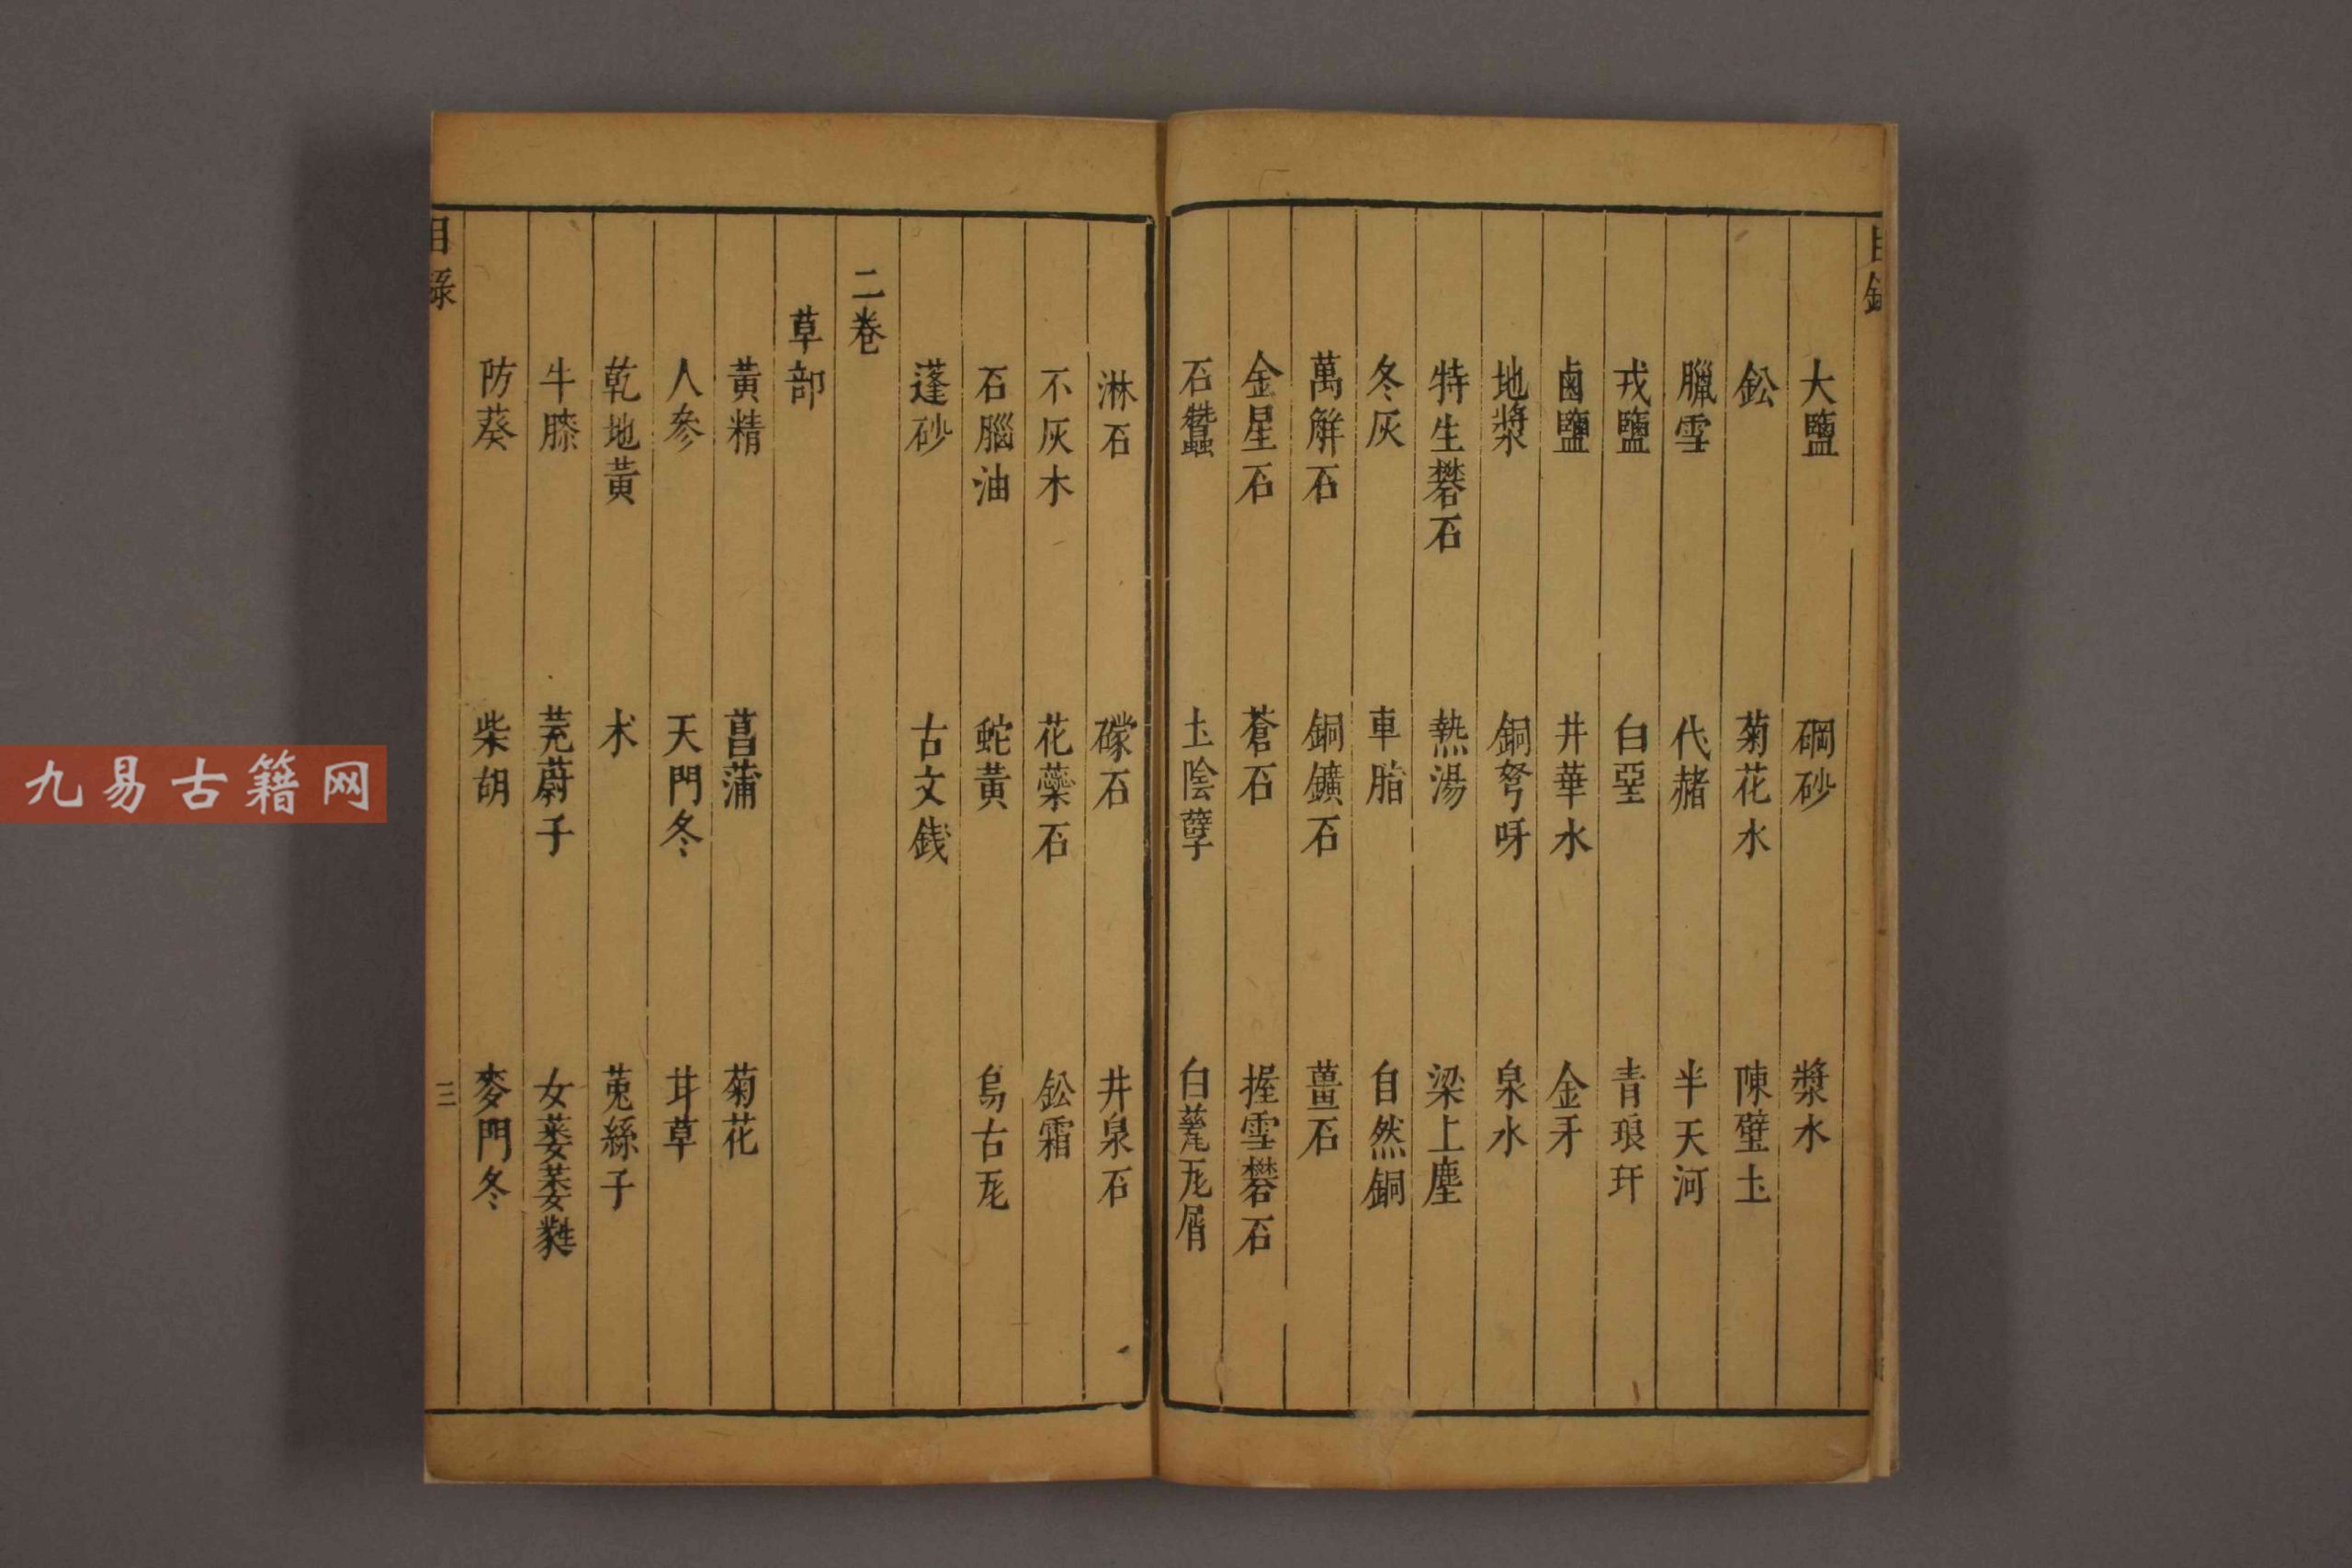 目錄
大鹽 碙砂 漿水
鈆 菊花水 陳壁土
臘雪 代赭 半天河
戎鹽 白堊 青琅玕
鹵鹽 井華水 金牙
地漿 銅弩呀 泉水
特生礬石 熱湯 梁上塵
冬灰 車脂 自然銅
萬觧石 銅鑛石 薑石
金星石 蒼石 握雪礬石
石蠶 土陰孽 白瓷瓦屑
淋石 礞石 井泉石
不灰木 花蘂石 鈆霜
石腦油 蛇黃 烏古瓦
蓬砂 古文銭
二卷
草部
黃精 菖蒲 菊花
人參 天門冬 甘草
乾地黃 术 莵絲子
牛膝 茺蔚子 女萎萎蕤
防葵 柴胡 麥門冬
目錄
三
九易古籍网